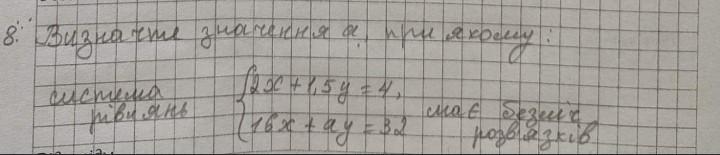 8. Визначте значення a, при якому:
система рівнянь { 2x + 1,5y = 4, 16x + ay = 32 має безліч розв'язків